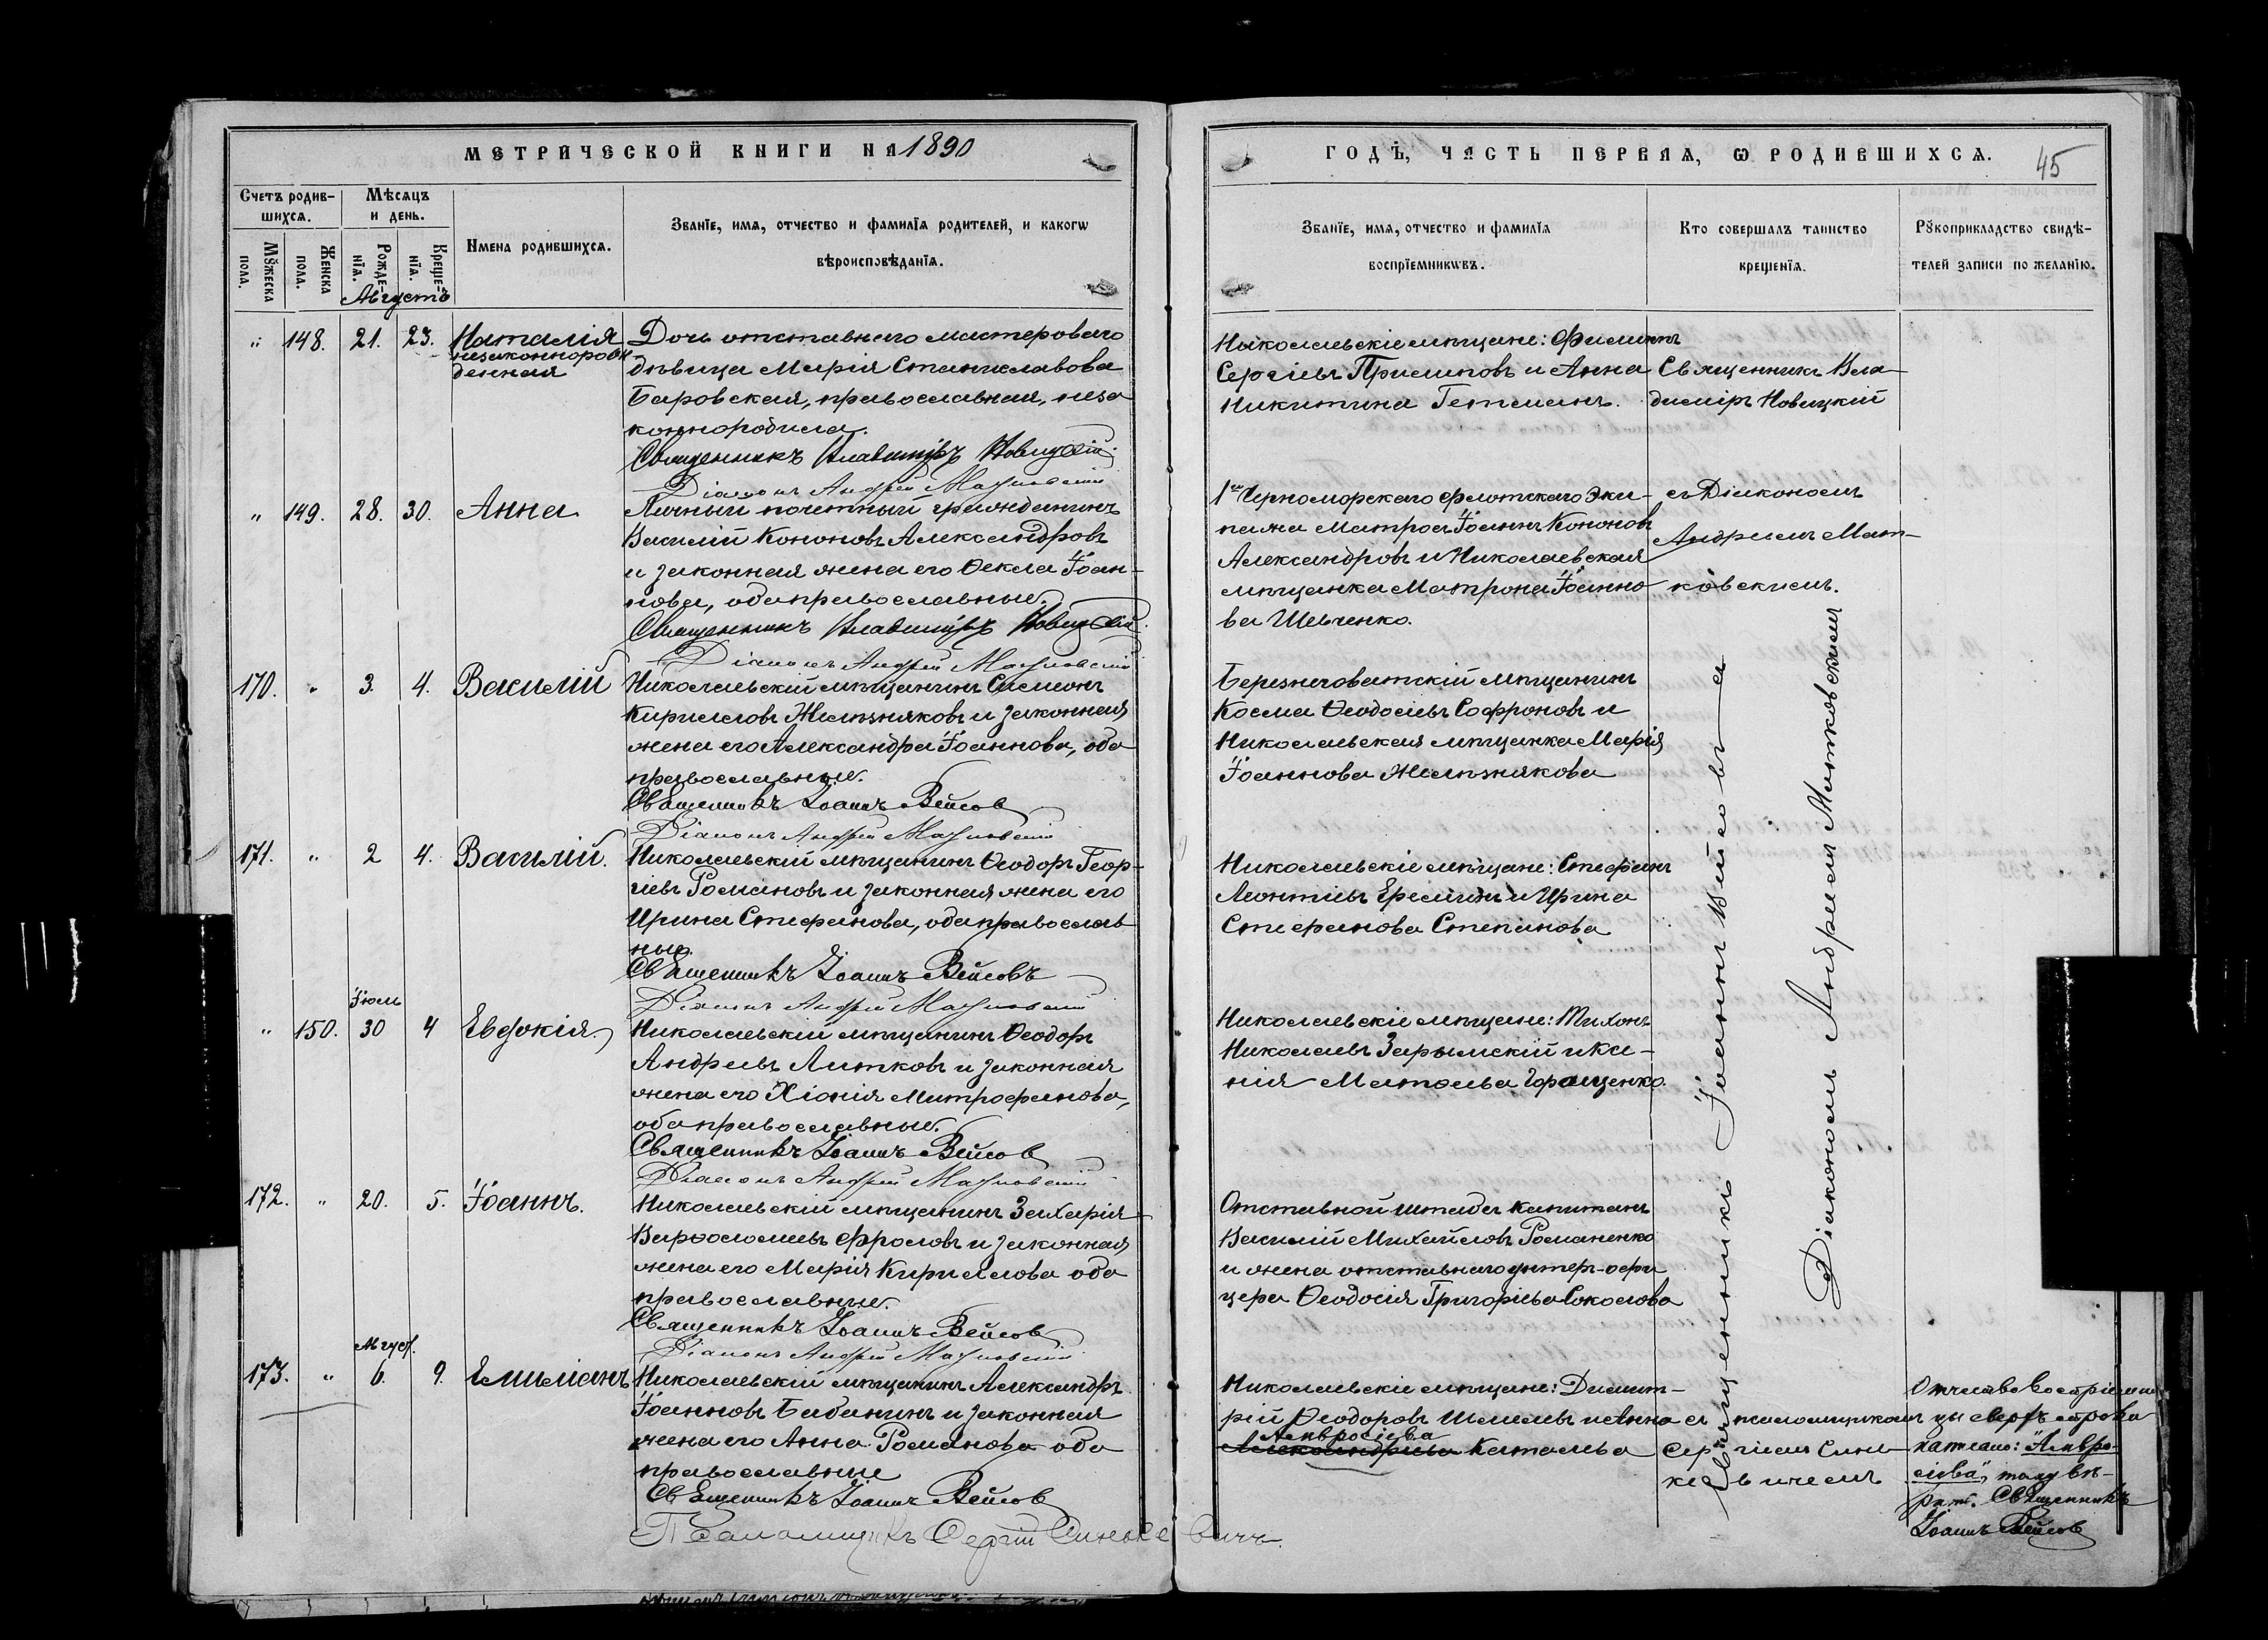 МЕТРИЧЕСКОЙ КНИГИ НА 1890
Счетъ родив-
шихся.
Мѣсяцъ
и день.
Мꙋжеска
пола.
Женска
пола.
Рожде-
нїя.
Креще-
нїя.
Имена родившихся.
Званїе, имя, отчество и фамилїя родителей, и какогѡ
вѣроисповѣданїя.
Августъ
" 148. 21. 23. Наталія
незаконнорож
денная
Дочь отставнаго мастероваго
дѣвица Марія Станиславова
Баровская, православная, неза
коннородила.
Священникъ Владиміръ Новицкій
Діаконъ Андрей Матковскій
" 149. 28. 30. Анна
Личный почетный гражданинъ
Василій Кононовъ Александровъ
и законная жена его Ѳекла Іоан-
нова, оба православные.
Священникъ Владиміръ Новицкій
Діаконъ Андрей Матковскій
170. " 3. 4. Василій
Николаевскій мѣщанинъ Симеонъ
Кирилловъ Желѣзняковъ и законная
жена его Александра Іоаннова, оба
православные.
Священникъ Іоаннъ Вейсов
Діаконъ Андрей Матковскій
171. " 2 4. Василій.
Николаевскій мѣщанинъ Ѳеодоръ Геор-
гіевъ Романовъ и законная жена его
Ирина Стефанова, оба православ
ные.
Священникъ Іоаннъ Вейсовъ
Діаконъ Андрей Матковскій
Іюль
" 150. 30 4 Евдокія.
Николаевскій мѣщанинъ Ѳеодоръ
Андреевъ Литковъ и законная
жена его Хіонія Митрофанова,
оба православные.
Священникъ Іоаннъ Вейсов
Діаконъ Андрей Матковскій
172. " 20. 5. Іоаннъ.
Николаевскій мѣщанинъ Захарія
Варѳоломеевъ Фроловъ и законная
жена его Марія Кириллова оба
православные.
Священникъ Іоаннъ Вейсов
Діаконъ Андрей Матковскій
Август.
173. " 6. 9. Емиліанъ
Николаевскій мѣщанинъ Александръ
Іоанновъ Бабанинъ и законная
жена его Анна Романова оба
православные
Священникъ Іоаннъ Вейсов
Псаломщикъ Сергій Синькевичъ.
ГОДЪ, ЧАСТЬ ПЕРВАЯ, Ѡ РОДИВШИХСЯ.
45
Званїе, имя, отчество и фамилїя
воспрїемникѡвъ.
Кто совершалъ таинство
крещенїя.
Рꙋкоприкладство свидѣ-
телей записи по желанїю.
Николаевскіе мѣщане: Филиппъ
Сергіевъ Прилиповъ и Анна
Никитина Гетманъ.
Священникъ Вла-
диміръ Новицкій
1го Черноморскаго флотскаго Эки-
пажа матросъ Іоаннъ Кононовъ
Александровъ и Николаевская
мѣщанка Матрона Іоанно
ва Шевченко.
съ Діакономъ
Андреемъ Мат-
ковскимъ.
Березнеговатскій мѣщанинъ
Косма Ѳеодосіевъ Софроновъ и
Николаевская мѣщанка Марія
Іоаннова Желѣзнякова
Николаевскіе мѣщане: Стефанъ
Леонтіевъ Ереминъ и Ирина
Стефанова Степанова
Николаевскіе мѣщане: Тихонъ
Николаевъ Зарымскій и Ксе-
нія Матвѣева Горащенко.
Отставной штабсъ капитанъ
Василій Михайловъ Романенко
и жена отставнаго унтеръ-офи
цера Ѳеодосія Григорьева Соколова
Священникъ Іоаннъ Вейсовъ съ
Діакономъ Андреемъ Матковскимъ
Николаевскіе мѣщане: Димит-
рій Ѳеодоровъ Шмелевъ и Анна
Амвросіева
Александрова Катаева
съ псаломщикомъ
Сергіемъ Синь
кевичемъ
Отчество воспріемни
цы сверхъ строки
написано: "Амвро-
сіева", тому вѣ-
рить. Священникъ
Іоаннъ Вейсов